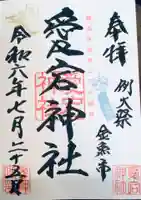 奉拝
例大祭
金魚市
愛宕神社
令和六年七月二十五日